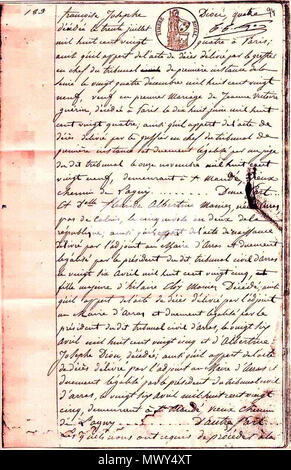 183
françoise Josephe Diou, quatre
décédée le trente juillet
mil huit cent vingt quatre à Paris,
ainsi qu'il appert de l'acte de décès délivré par le greffier
en chef du tribunal de première instance
le vingt quatre décembre mil huit cent vingt
neuf, veuf en premier Mariage de Jeanne
Guérin, décédée à Paris le dix huit juin mil huit
cent vingt quatre, ainsi qu'il appert de l'acte de
décès délivré par le greffier en chef du tribunal de
première instance et dument légalisé par un juge
du dit tribunal le onze novembre mil huit cent
vingt neuf, demeurant à St Mandé vieux
chemin de Lagny. D'une Part.
Et Dlle Albertine Monier, née Arras
pas de Calais, le cinq en deux de la
république, ainsi qu'il appert de l'acte de naissance
délivré par l'adjoint au Maire d'Arras et dument
légalisé par le président du dit tribunal civil d'arras,
le vingt six avril mil huit cent vingt cinq, et
fille majeure d'hilaire Eloy Monier Décédé, ainsi
qu'il appert de l'acte de décès délivré par l'adjoint
au Maire d'arras et dument légalisé par le
président du dit tribunal civil d'arras, le vingt six
avril mil huit cent vingt cinq et d'Albertine
Josephe Diou, décédée, ainsi qu'il appert de l'acte
de décès délivré par l'adjoint au Maire d'Arras et
dument légalisé par le président du tribunal civil
d'arras, le vingt six avril mil huit cent vingt
cinq, demeurant à St Mandé vieux Chemin
de Lagny. D'autre Part.
Lesquels nous ont requis de procéder à la
alamy
Image ID: MWY4XT
www.alamy.com